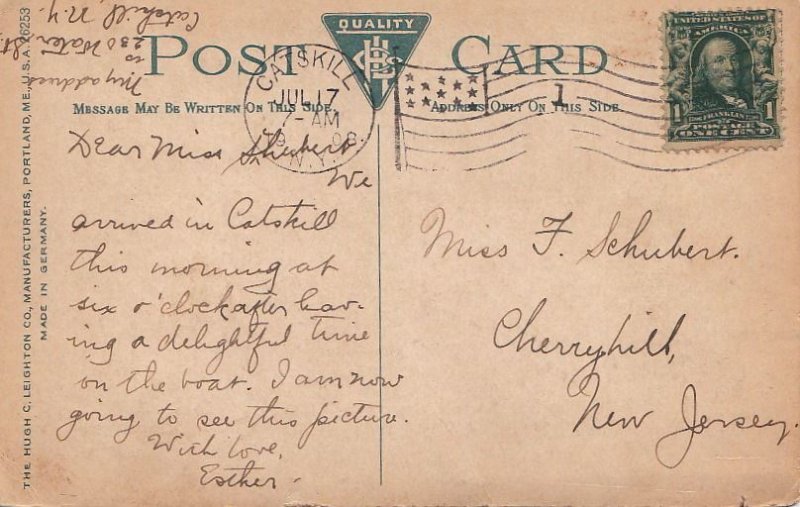 My address
is
230 Water St.
Catskill, N.Y.
POST CARD
QUALITY
MESSAGE MAY BE WRITTEN ON THIS SIDE.
ADDRESS ONLY ON THIS SIDE.
CATSKILL
JUL 17
7-AM
1908
N.Y.
1
UNITED STATES OF
AMERICA
1 1
FRANKLIN
POSTAGE
ONE CENT
Dear Miss Shubert,
We
arrived in Catskill
this morning at
six o'clock after hav-
ing a delightful time
on the boat. I am now
going to see this picture.
With love,
Esther.
Miss F. Schubert.
Cherryhill,
New Jersey.
THE HUGH C. LEIGHTON CO., MANUFACTURERS, PORTLAND, ME., U.S.A. 26253
MADE IN GERMANY.